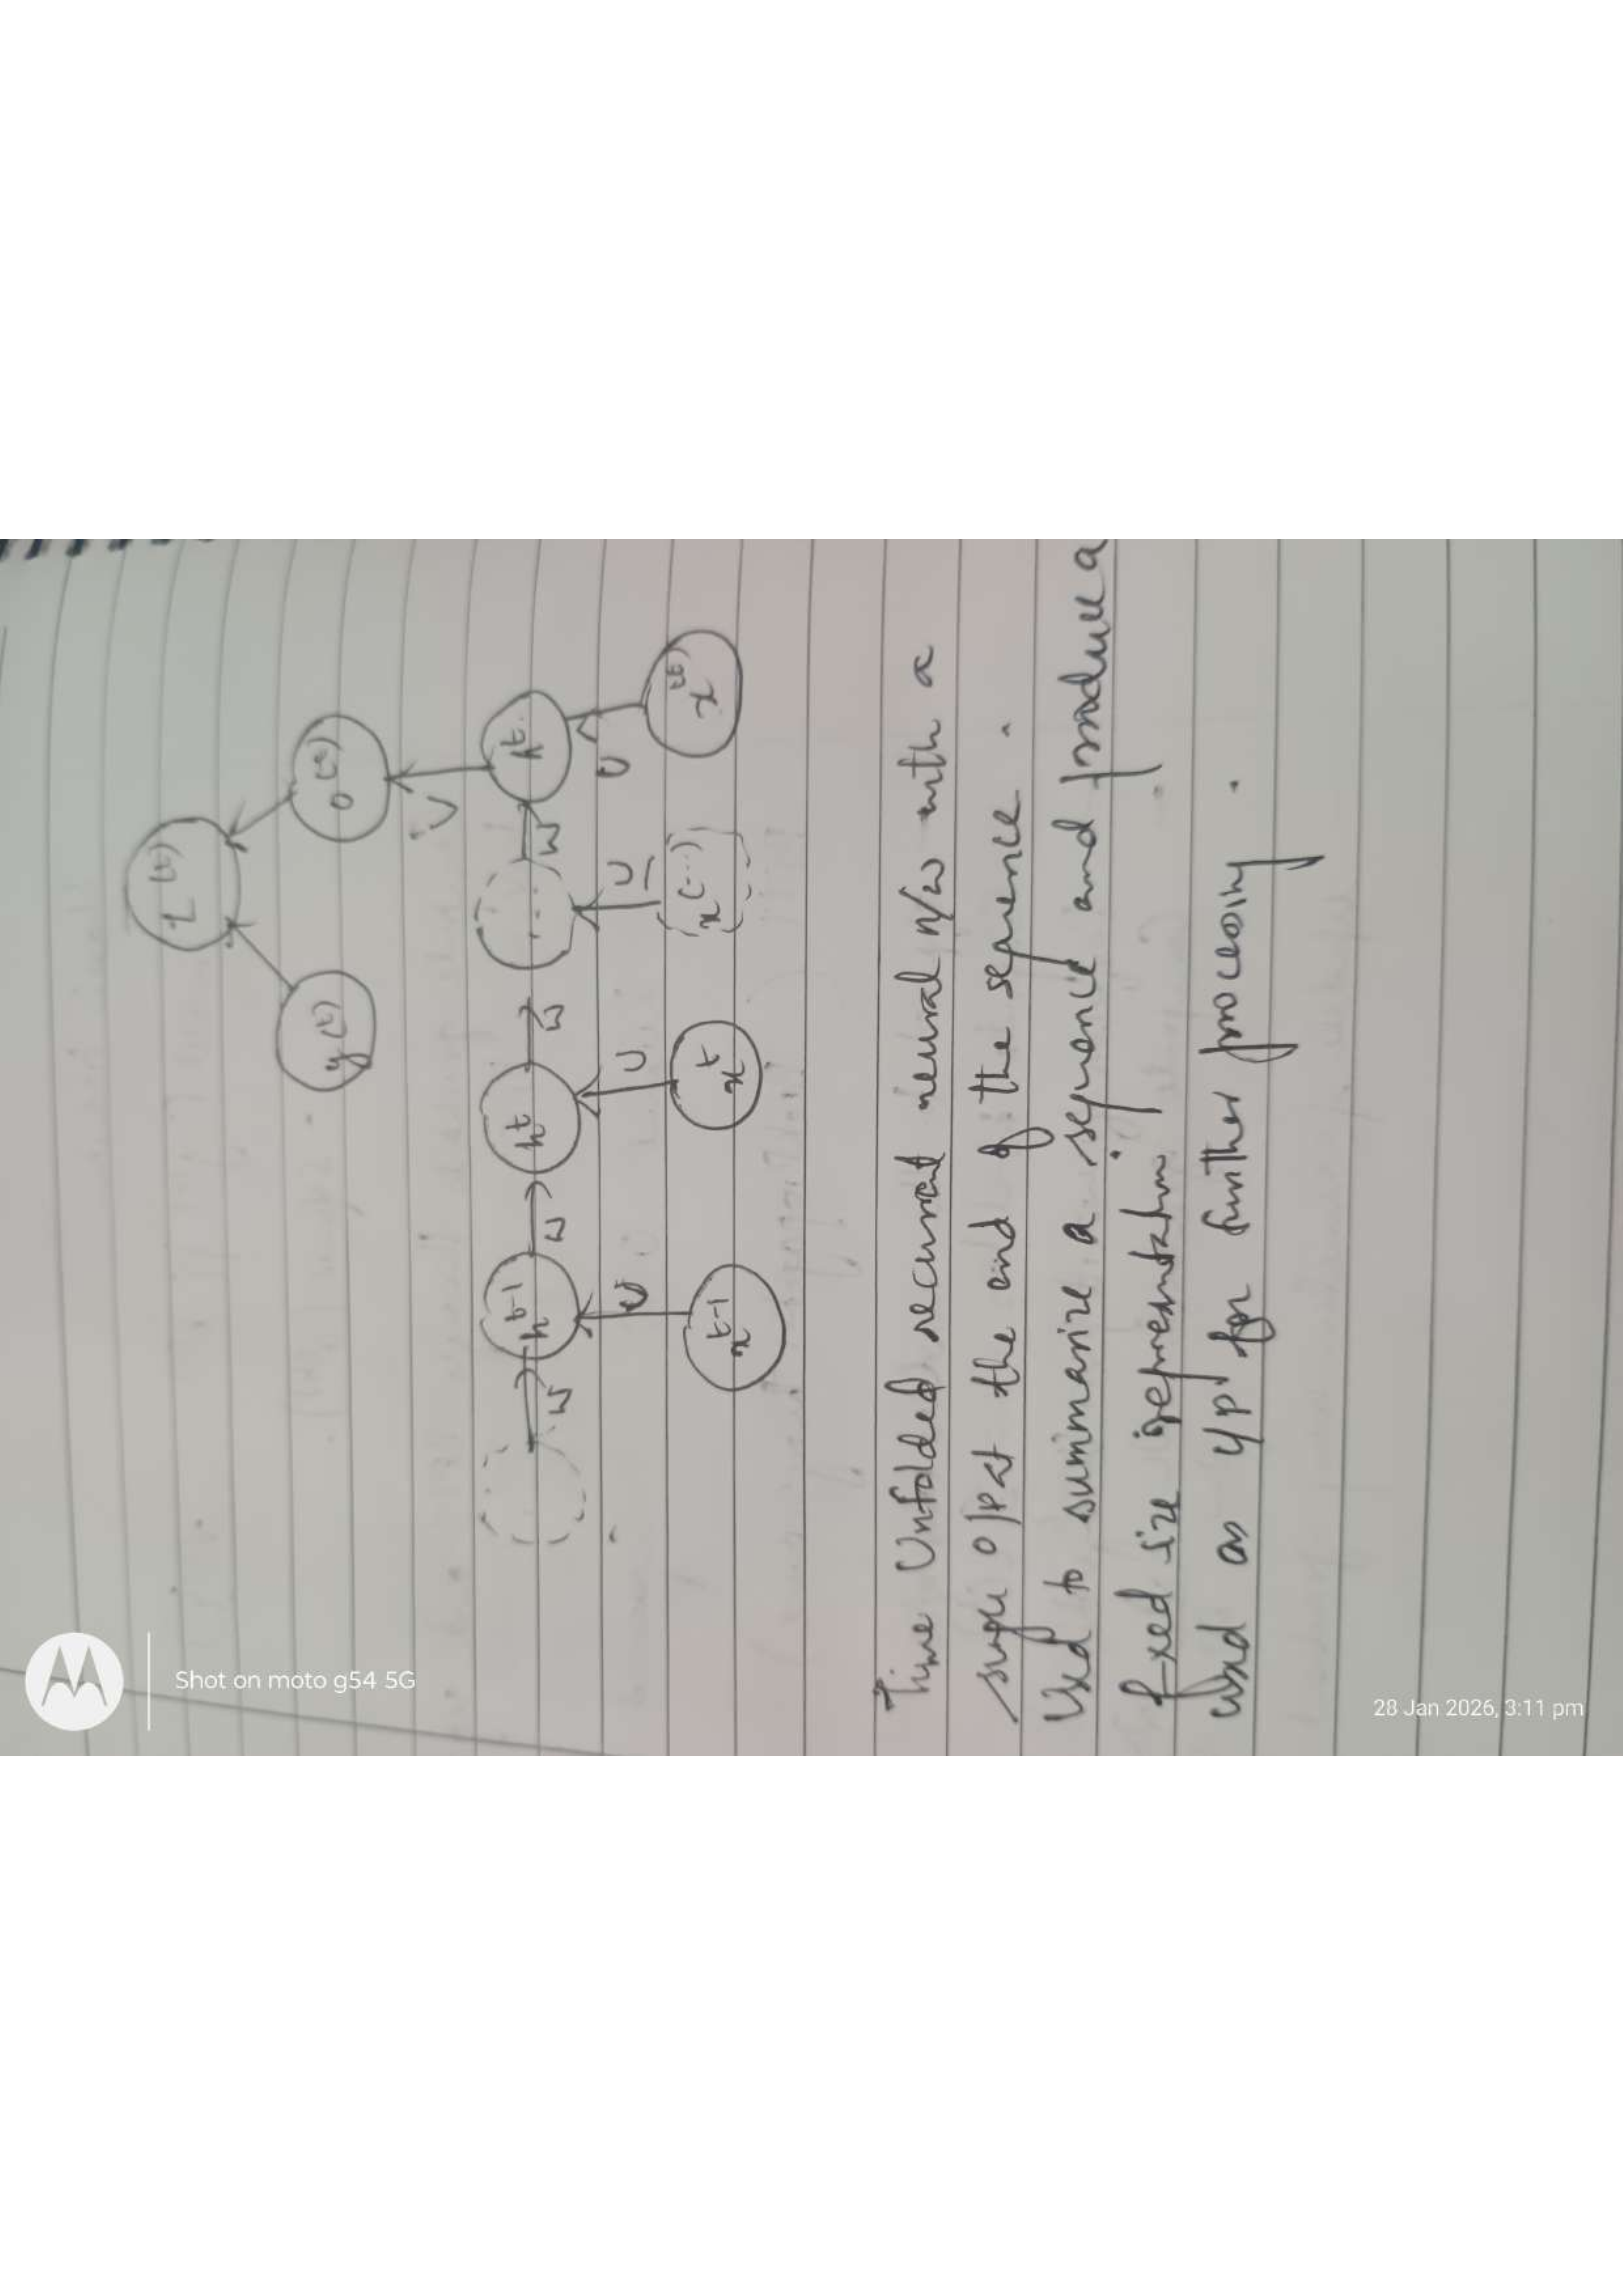 L(t)
y(t) o(t)
V
w h t-1 w h t w ... w h t
U U U U
x t-1 x t x(...) x(t)
Time Unfolded recurrent neural n/w with a
single o/p at the end of the sequence.
Used to summarize a sequence and produce a
fixed size representation
used as i/p for further processing.
Shot on moto g54 5G
28 Jan 2026, 3:11 pm